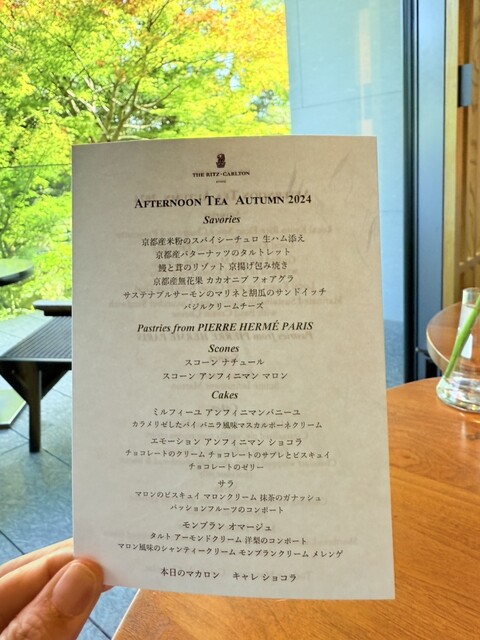 THE RITZ-CARLTON
KYOTO
AFTERNOON TEA AUTUMN 2024
Savories
京都産米粉のスパイシーチュロ 生ハム添え
京都産バターナッツのタルトレット
鰻と茸のリゾット 京揚げ包み焼き
京都産無花果 カカオニブ フォアグラ
サステナブルサーモンのマリネと胡瓜のサンドイッチ
バジルクリームチーズ
Pastries from PIERRE HERMÉ PARIS
Scones
スコーン ナチュール
スコーン アンフィニマン マロン
Cakes
ミルフィーユ アンフィニマンバニーユ
カラメリゼしたパイ バニラ風味マスカルポーネクリーム
エモーション アンフィニマン ショコラ
チョコレートのクリーム チョコレートのサブレとビスキュイ
チョコレートのゼリー
サラ
マロンのビスキュイ マロンクリーム 抹茶のガナッシュ
パッションフルーツのコンポート
モンブラン オマージュ
タルト アーモンドクリーム 洋梨のコンポート
マロン風味のシャンティークリーム モンブランクリーム メレンゲ
本日のマカロン キャレ ショコラ